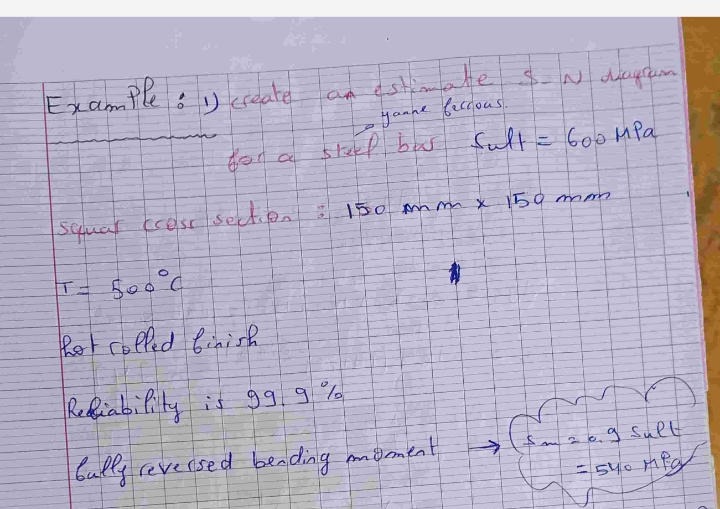 Example : 1) create an estimate S-N diagram
yanne ferrous.
for a steel bar Sult = 600 MPa
squar cross section : 150 mm x 150 mm
T = 500°C
hot rolled finish
Reliability is 99.9 %
fully reversed bending moment → Sm = 0.9 Sult
= 540 MPa